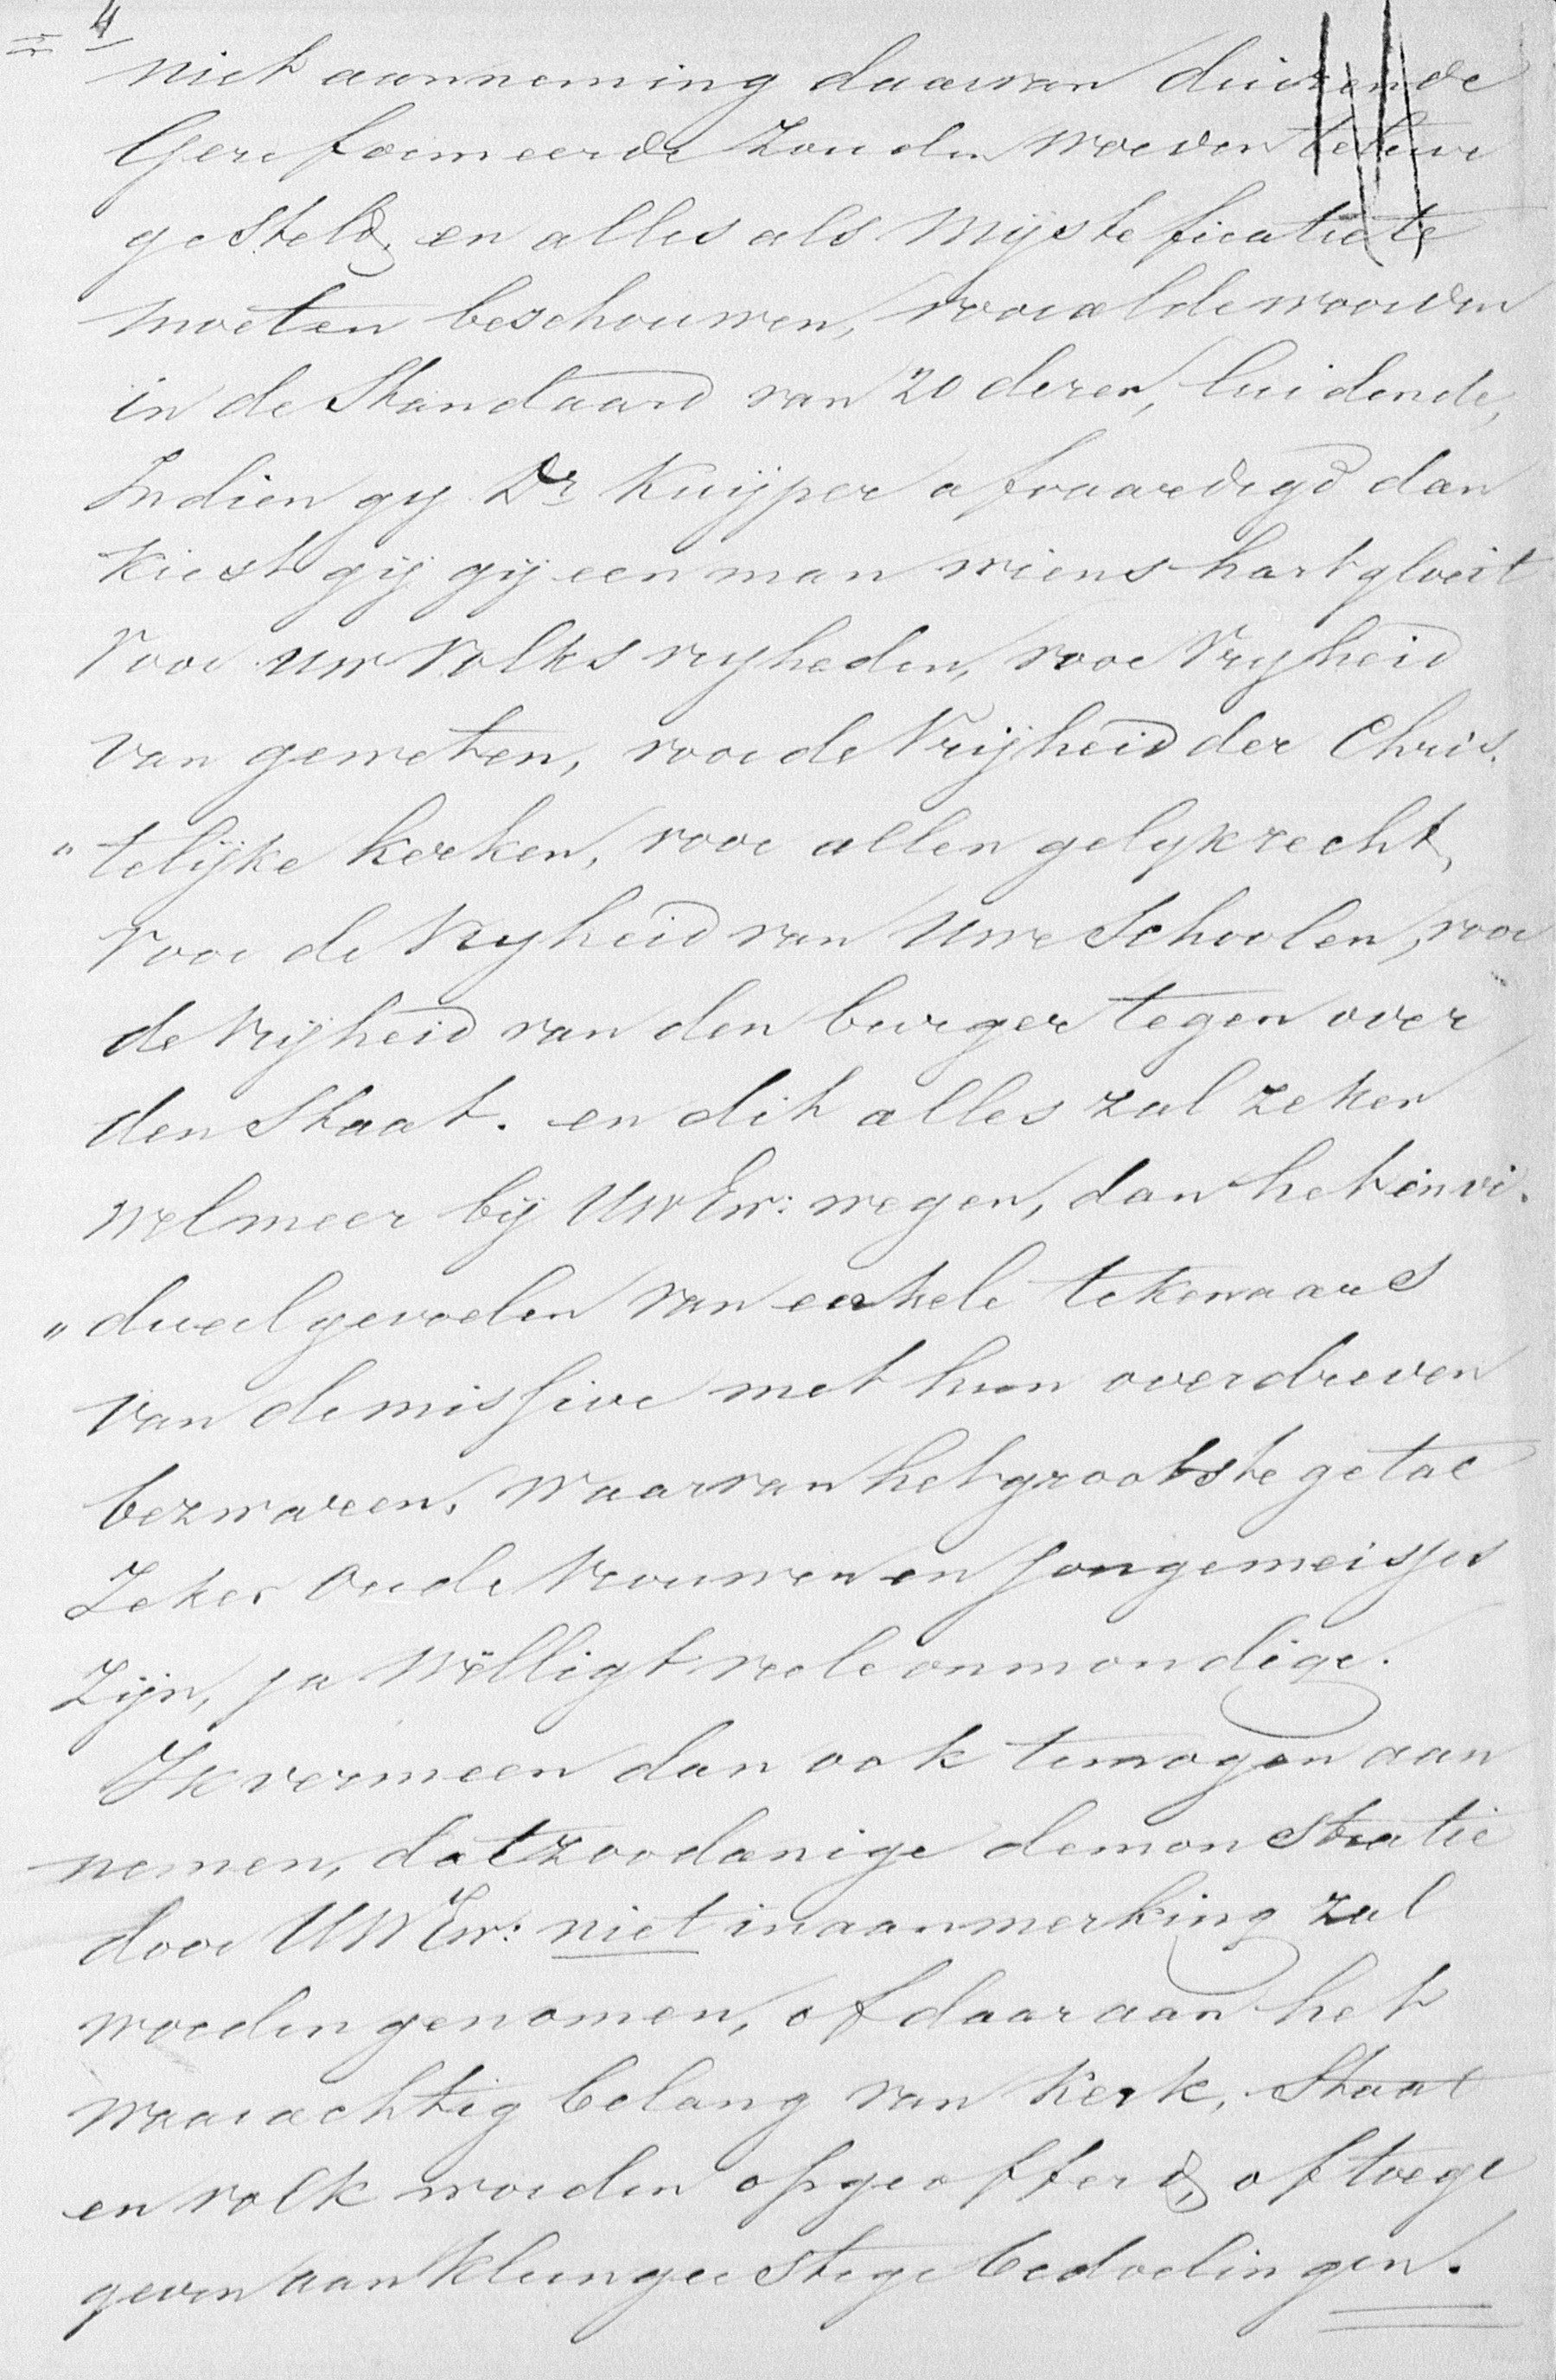 4
niet aanneming daarvan duizende
Gerefoormeerde zouden worden teleur
gesteld, en alles als Mijsteficatie te
moeten beschouwen, vooral de woorden
in de Standaard van 20 dezer, luidende,
Indien gy Dr Kuijper afvaardigd dan
kiest gij gij een man wiens hart gloeit
Voor uw Volks vryheden, voor Vryheid
van geweten, voor de Vrijheid der Chris.
„telijke kerken, voor allen gelyk recht,
Voor de Vryheid van Uwe Schoolen, voor
de Vrijheid van den burger tegen over
den Staat. en dit alles zal zeker
wel meer bij UwEw: wegen, dan het invi.
„dueel gevoelen van enkele tekenaars
van de missive met hun overdreven
bezwaren, waarvan het grootste getal
Zeker Oude Vrouwen en Jonge meisjes
Zijn, ja Welligt veele onmondige.
Ik vermeen dan ook te mogen aan
nemen, dat zoodanige demonstratie
door UWEw: niet in aanmerking zal
worden genomen, of daar aan het
waarachtig belang van Kerk, Staat
en volk worden opgeofferd, of toege
geven aan kleingeestige bedoelingen.